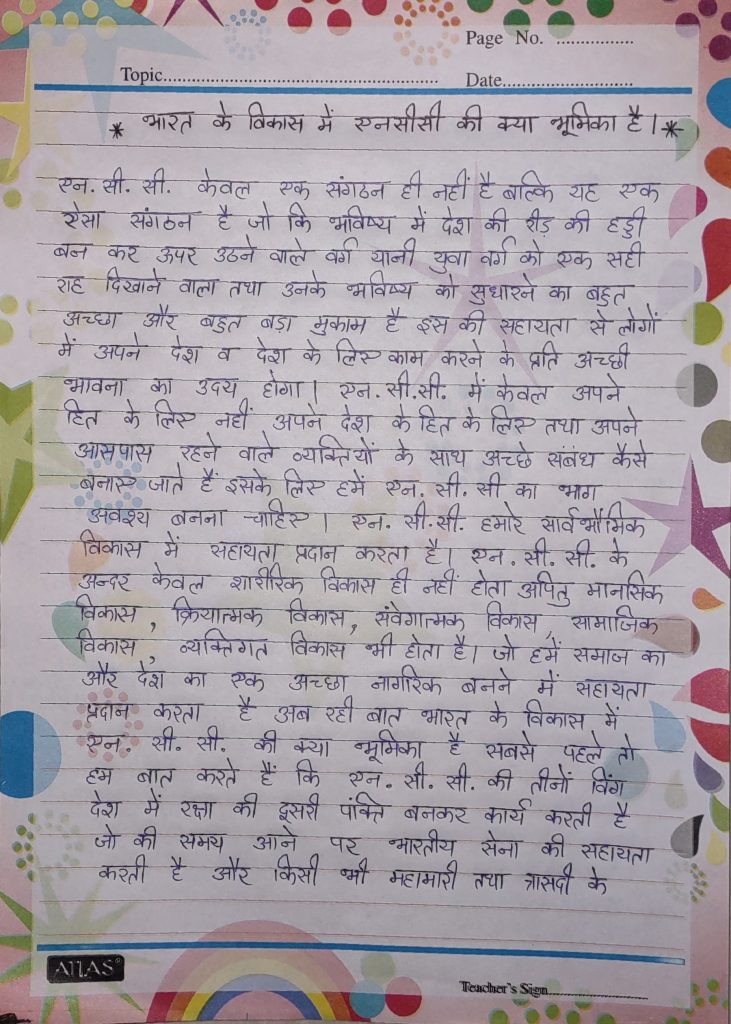 Page No. ................
Topic........................................................ Date............................
* भारत के विकास में एनसीसी की क्या भूमिका है। *
एन. सी. सी. केवल एक संगठन ही नहीं है बल्कि यह एक
ऐसा संगठन है जो कि भविष्य में देश की रीड़ की हड्डी
बन कर ऊपर उठने वाले वर्ग यानी युवा वर्ग को एक सही
राह दिखाने वाला तथा उनके भविष्य को सुधारने का बहुत
अच्छा और बहुत बड़ा मुकाम है इस की सहायता से लोगों
में अपने देश व देश के लिए काम करने के प्रति अच्छी
भावना का उदय होगा। एन. सी.सी. में केवल अपने
हित के लिए नहीं अपने देश के हित के लिए तथा अपने
आसपास रहने वाले व्यक्तियों के साथ अच्छे संबंध कैसे
बनाए जाते हैं इसके लिए हमें एन. सी. सी का भाग
अवश्य बनना चाहिए। एन. सी.सी. हमारे सार्वभौमिक
विकास में सहायता प्रदान करता है। एन. सी. सी. के
अन्दर केवल शारीरिक विकास ही नहीं होता अपितु मानसिक
विकास, क्रियात्मक विकास, संवेगात्मक विकास, सामाजिक
विकास, व्यक्तिगत विकास भी होता है। जो हमें समाज का
और देश का एक अच्छा नागरिक बनने में सहायता
प्रदान करता है अब रही बात भारत के विकास में
एन. सी. सी. की क्या भूमिका है सबसे पहले तो
हम बात करते हैं कि एन. सी. सी. की तीनों विंग
देश में रक्षा की दूसरी पंक्ति बनकर कार्य करती है
जो की समय आने पर भारतीय सेना की सहायता
करती है और किसी भी महामारी तथा त्रासदी के
ATLAS
Teacher's Sign............................